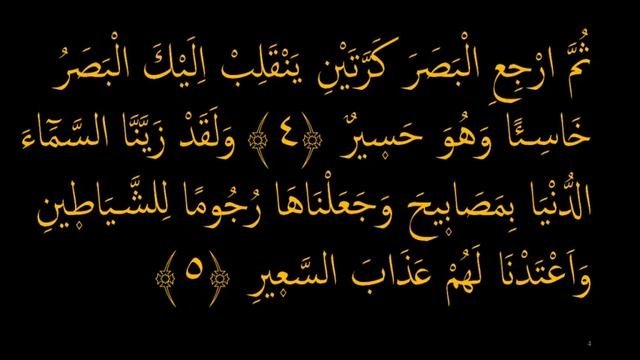 ثُمَّ ارْجِعِ الْبَصَرَ كَرَّتَيْنِ يَنْقَلِبْ اِلَيْكَ الْبَصَرُ
خَاسِئًا وَهُوَ حَسِيرٌ ﴿٤﴾ وَلَقَدْ زَيَّنَّا السَّمَٓاءَ
الدُّنْيَا بِمَصَابِيحَ وَجَعَلْنَاهَا رُجُومًا لِلشَّيَاطِينِ
وَاَعْتَدْنَا لَهُمْ عَذَابَ السَّعِيرِ ﴿٥﴾
4